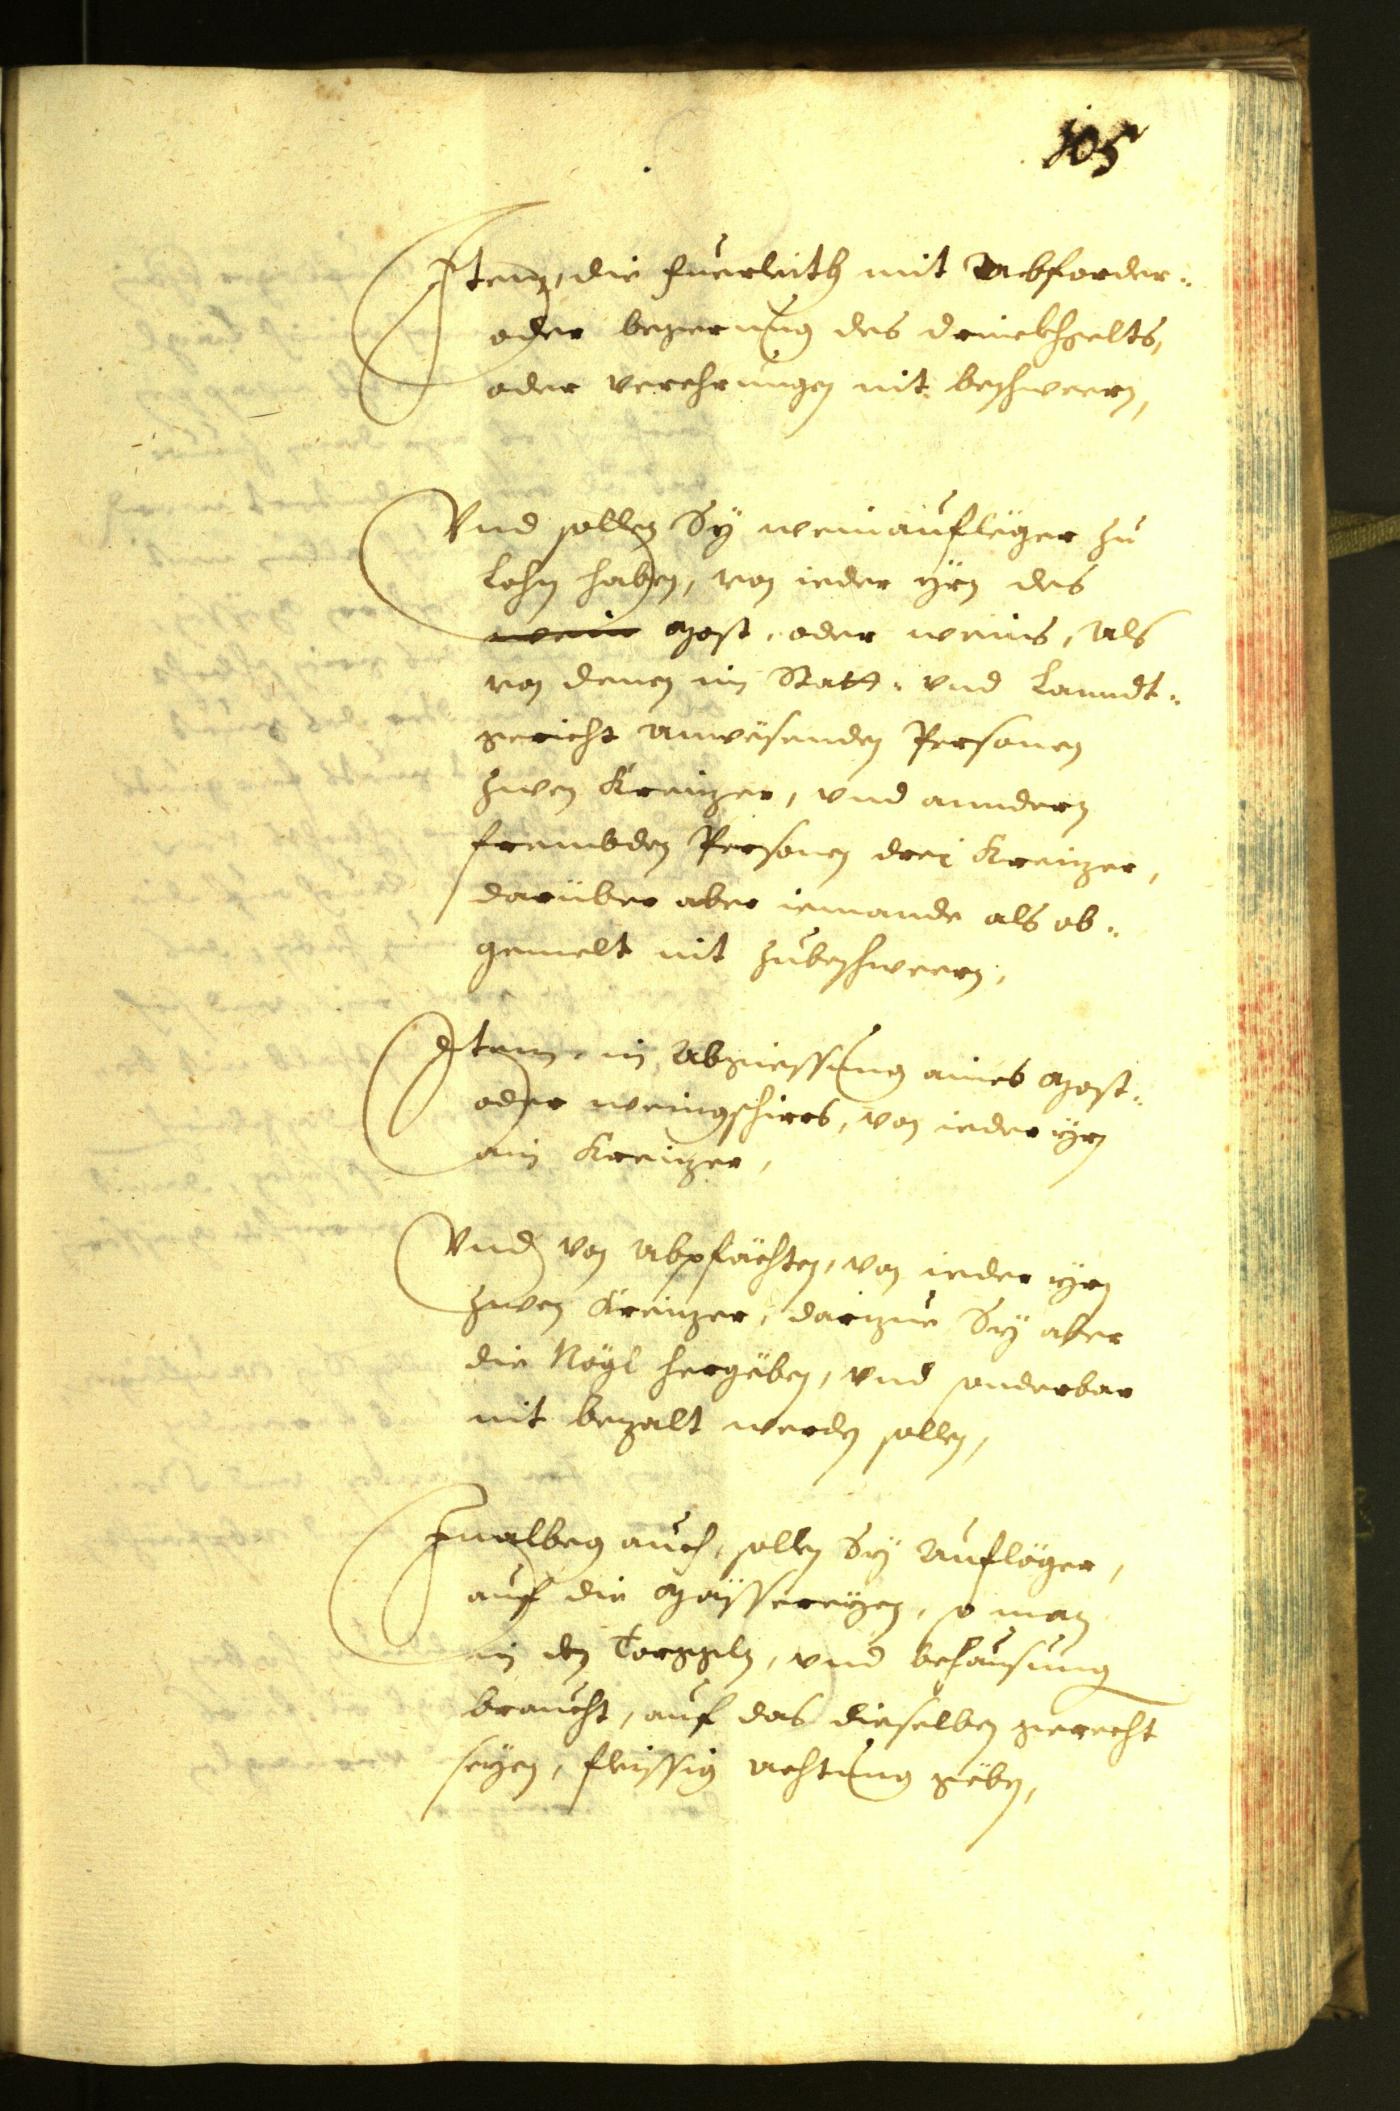 105
Item, die fuerleith mit Abforder-
oder begerung des drinckhgelts,
oder verehrungen nit beschweern,
Vnd sollen Sÿ weinaufleger zu
Lohn haben, von ieder yrn des
wein Most, oder weins, Als
von denen im Statt- vnd Lanndt-
gericht anwesenden Personen
zwen Kreuzer, vnd anndern
frembden Personen drei Kreuzer,
darüber aber iemande als ob-
gemelt nit zubeschweern,
Item in Abgiessung aines Most-
oder weingschirrs, von ieder yrn
ain Kreuzer,
Vnd von Abpfächten, von ieder yrn
zwen Kreuzer, darzue Sÿ aber
die Nögl hergeben, vnd sonderbar
nit bezalt werden sollen,
auch, sollen Sÿ Aufleger,
auf die Mässereyen, so man
in den Torggeln, vnd behausung
braucht, auf das dieselben gerecht
seyen, fleissig achtung geben,